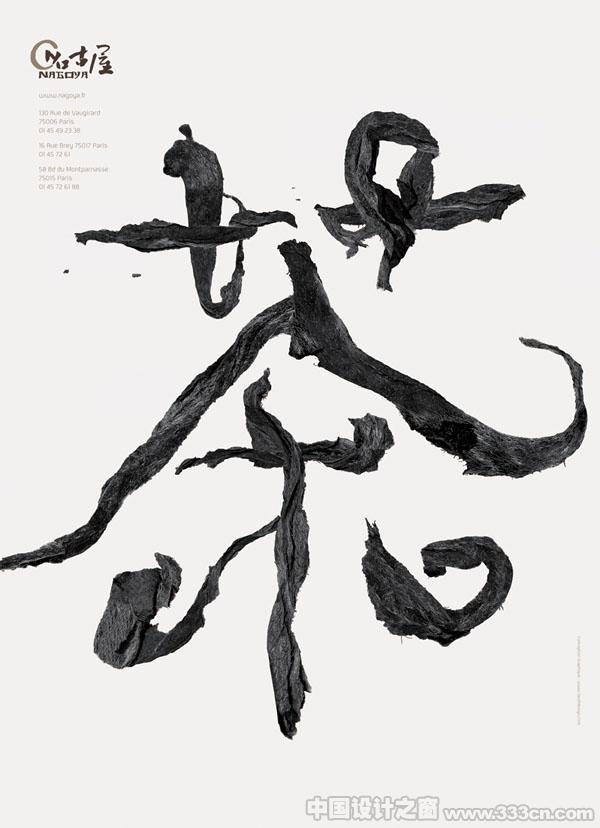 名古屋
NAGOYA
www.nagoya.fr
130 Rue de Vaugirard
75006 Paris
01 45 49 23 38
16 Rue Brey 75017 Paris
01 45 72 61
58 Bd du Montparnasse
75015 Paris
01 45 72 61 88
茶
中国设计之窗 www.333cn.com